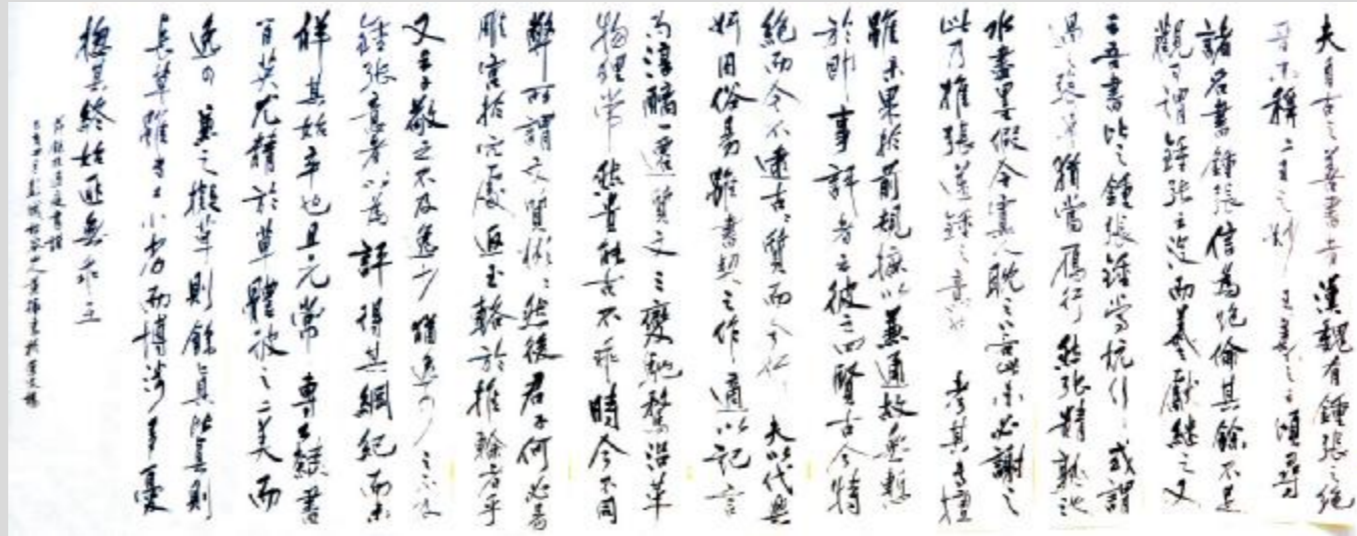 夫自古之善書者漢魏有鍾張之絕
晉末稱二王之妙王羲之云頃尋
諸名書鍾張信為絕倫其餘不足
觀可謂鍾張云沒而羲獻繼之又
云吾書比之鍾張鍾當抗行或謂
過之張草猶當雁行然張精熟池
水盡墨假令寡人耽之若此未必謝之
此乃推張邁鍾之意也考其專擅
雖未果於前規摭以兼通故無慙
於即事評者云彼之四賢古今特
絕而今不逮古古質而今妍夫以代興
妍因俗易雖書契之作適以記言
而淳醨一遷質文三變馳騖沿革
物理常然貴能古不乖時今不同
弊所謂文質彬彬然後君子何必易
雕宮於穴處返玉輅於椎輪者乎
又云子敬之不及逸少猶逸少之不及
鍾張意者以為評得其綱紀而未
詳其始卒也且元常專工隸書
百英尤精於草體彼之二美而
逸少兼之擬草則餘真比真則
長草雖專工小劣而博涉多優
揔其終始匪無乖互
節錄孫過庭書譜